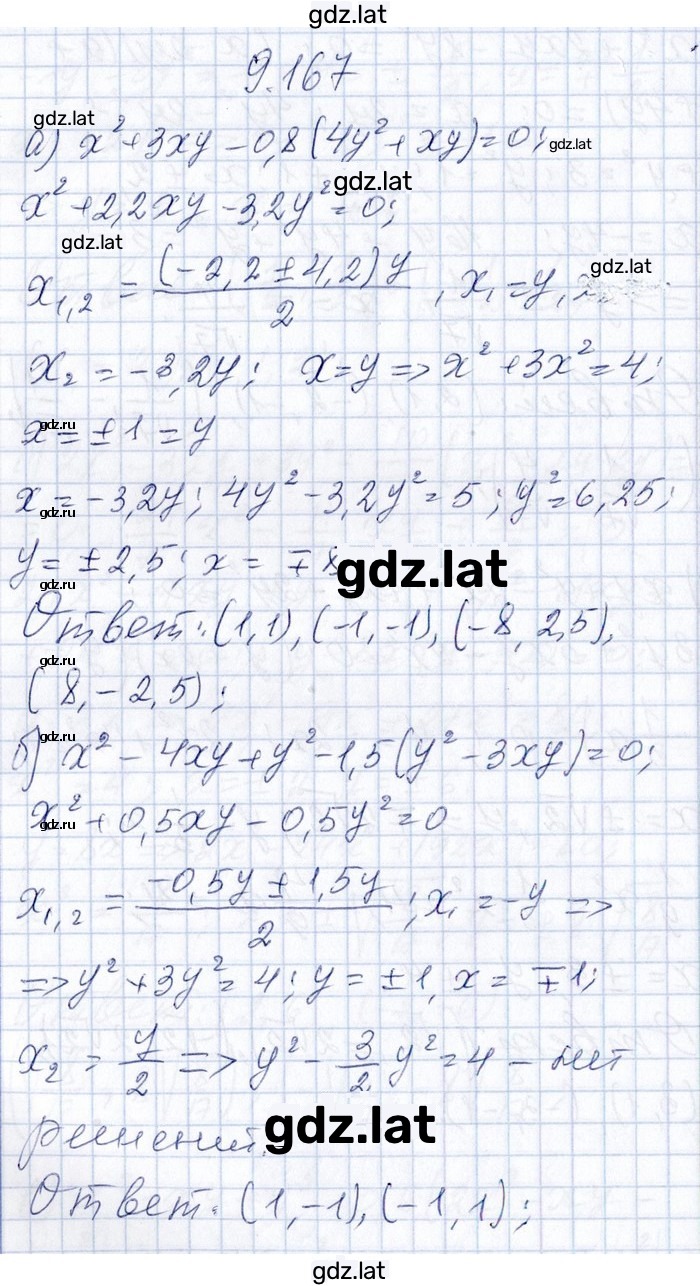 gdz.lat
9.167
gdz.lat
а) x² + 3xy - 0,8(4y² + xy) = 0; gdz.lat
x² + 2,2xy - 3,2y² = 0; gdz.lat
gdz.lat
x₁,₂ = (-2,2 ± 4,2)y / 2, x₁ = y, gdz.lat
x₂ = -3,2y; x = y => x² + 3x² = 4;
gdz.ru
x = ±1 = y
x = -3,2y; 4y² - 3,2y² = 5; y² = 6,25;
gdz.ru
y = ±2,5; x = ∓8 gdz.lat
gdz.ru
Ответ: (1,1), (-1,-1), (-8, 2,5),
gdz.ru
(8, -2,5);
gdz.ru
б) x² - 4xy + y² - 1,5(y² - 3xy) = 0;
x² + 0,5xy - 0,5y² = 0
gdz.ru
x₁,₂ = -0,5y ± 1,5y / 2; x₁ = -y =>
=> y² + 3y² = 4; y = ±1, x = ∓1;
x₂ = y/2 => y² - 3/2 y² = 4 - нет
решений. gdz.lat
Ответ: (1,-1), (-1,1);
gdz.lat